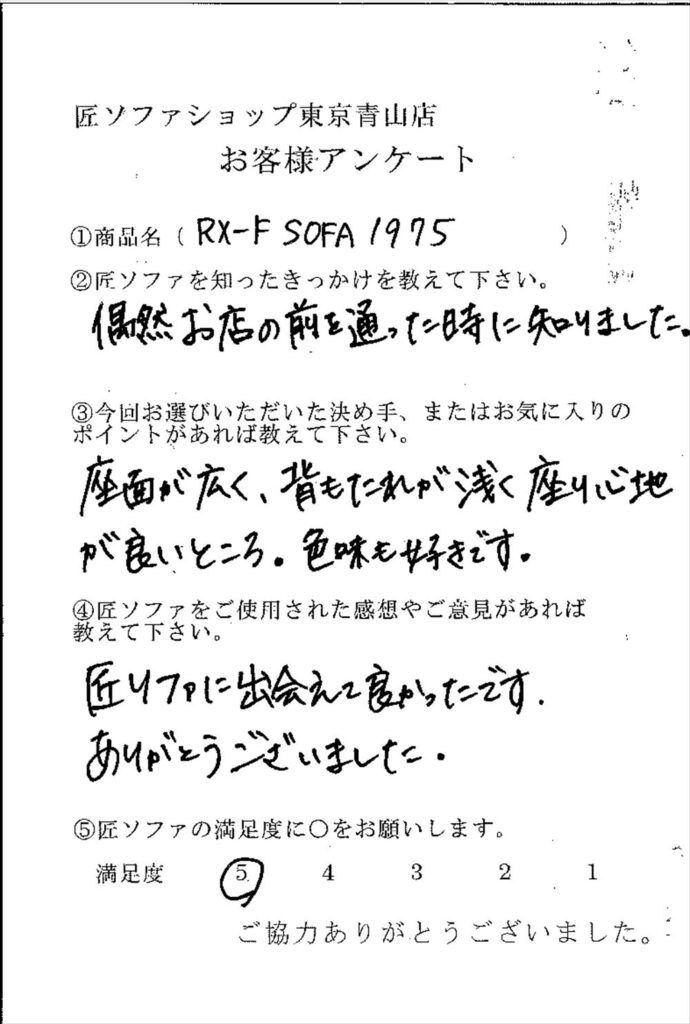 匠ソファショップ東京青山店
お客様アンケート
①商品名（ RX-F SOFA 1975 ）
②匠ソファを知ったきっかけを教えて下さい。
偶然お店の前を通った時に知りました。
③今回お選びいただいた決め手、またはお気に入りの
ポイントがあれば教えて下さい。
座面が広く、背もたれが浅く座り心地
が良いところ。色味も好きです。
④匠ソファをご使用された感想やご意見があれば
教えて下さい。
匠ソファに出会えて良かったです．
ありがとうございました．
⑤匠ソファの満足度に○をお願いします。
満足度 5 4 3 2 1
ご協力ありがとうございました。